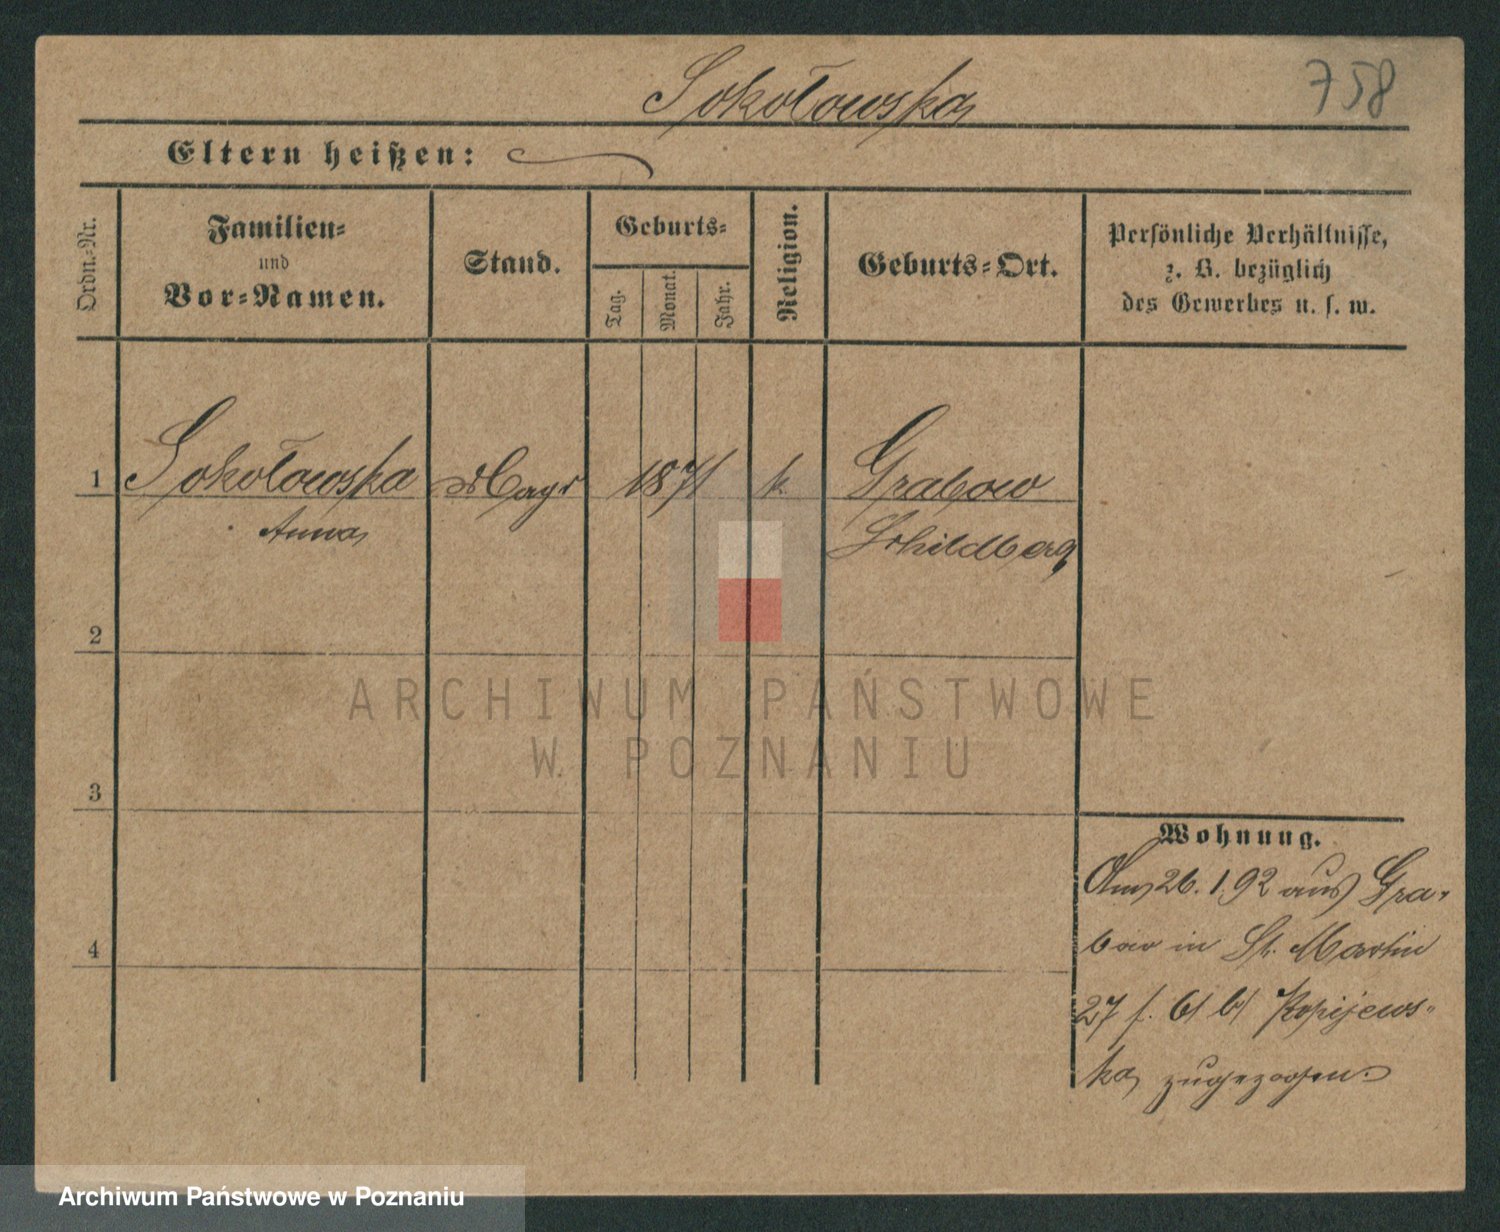 758
Sokołowska
Eltern heißen:
Ordn.-Nr.
Familien-
und
Vor-Namen.
Stand.
Geburts-
Tag.
Monat.
Jahr.
Religion.
Geburts-Ort.
Persönliche Verhältnisse,
z. B. bezüglich
des Gewerbes u. s. w.
1 Sokołowska 1871 k Grabow
Anna Schildberg
2
ARCHIWUM PAŃSTWOWE
W POZNANIU
3
4
Wohnung.
Am 26.1.92 aus Gra-
bow in St. Martin
27 Kopijews-
ka zugezogen.
Archiwum Państwowe w Poznaniu